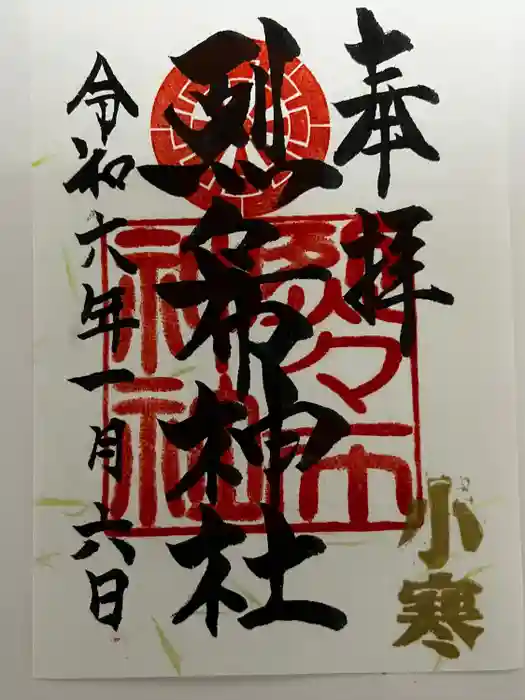 奉拝
烈々布神社
令和六年一月六日
小寒